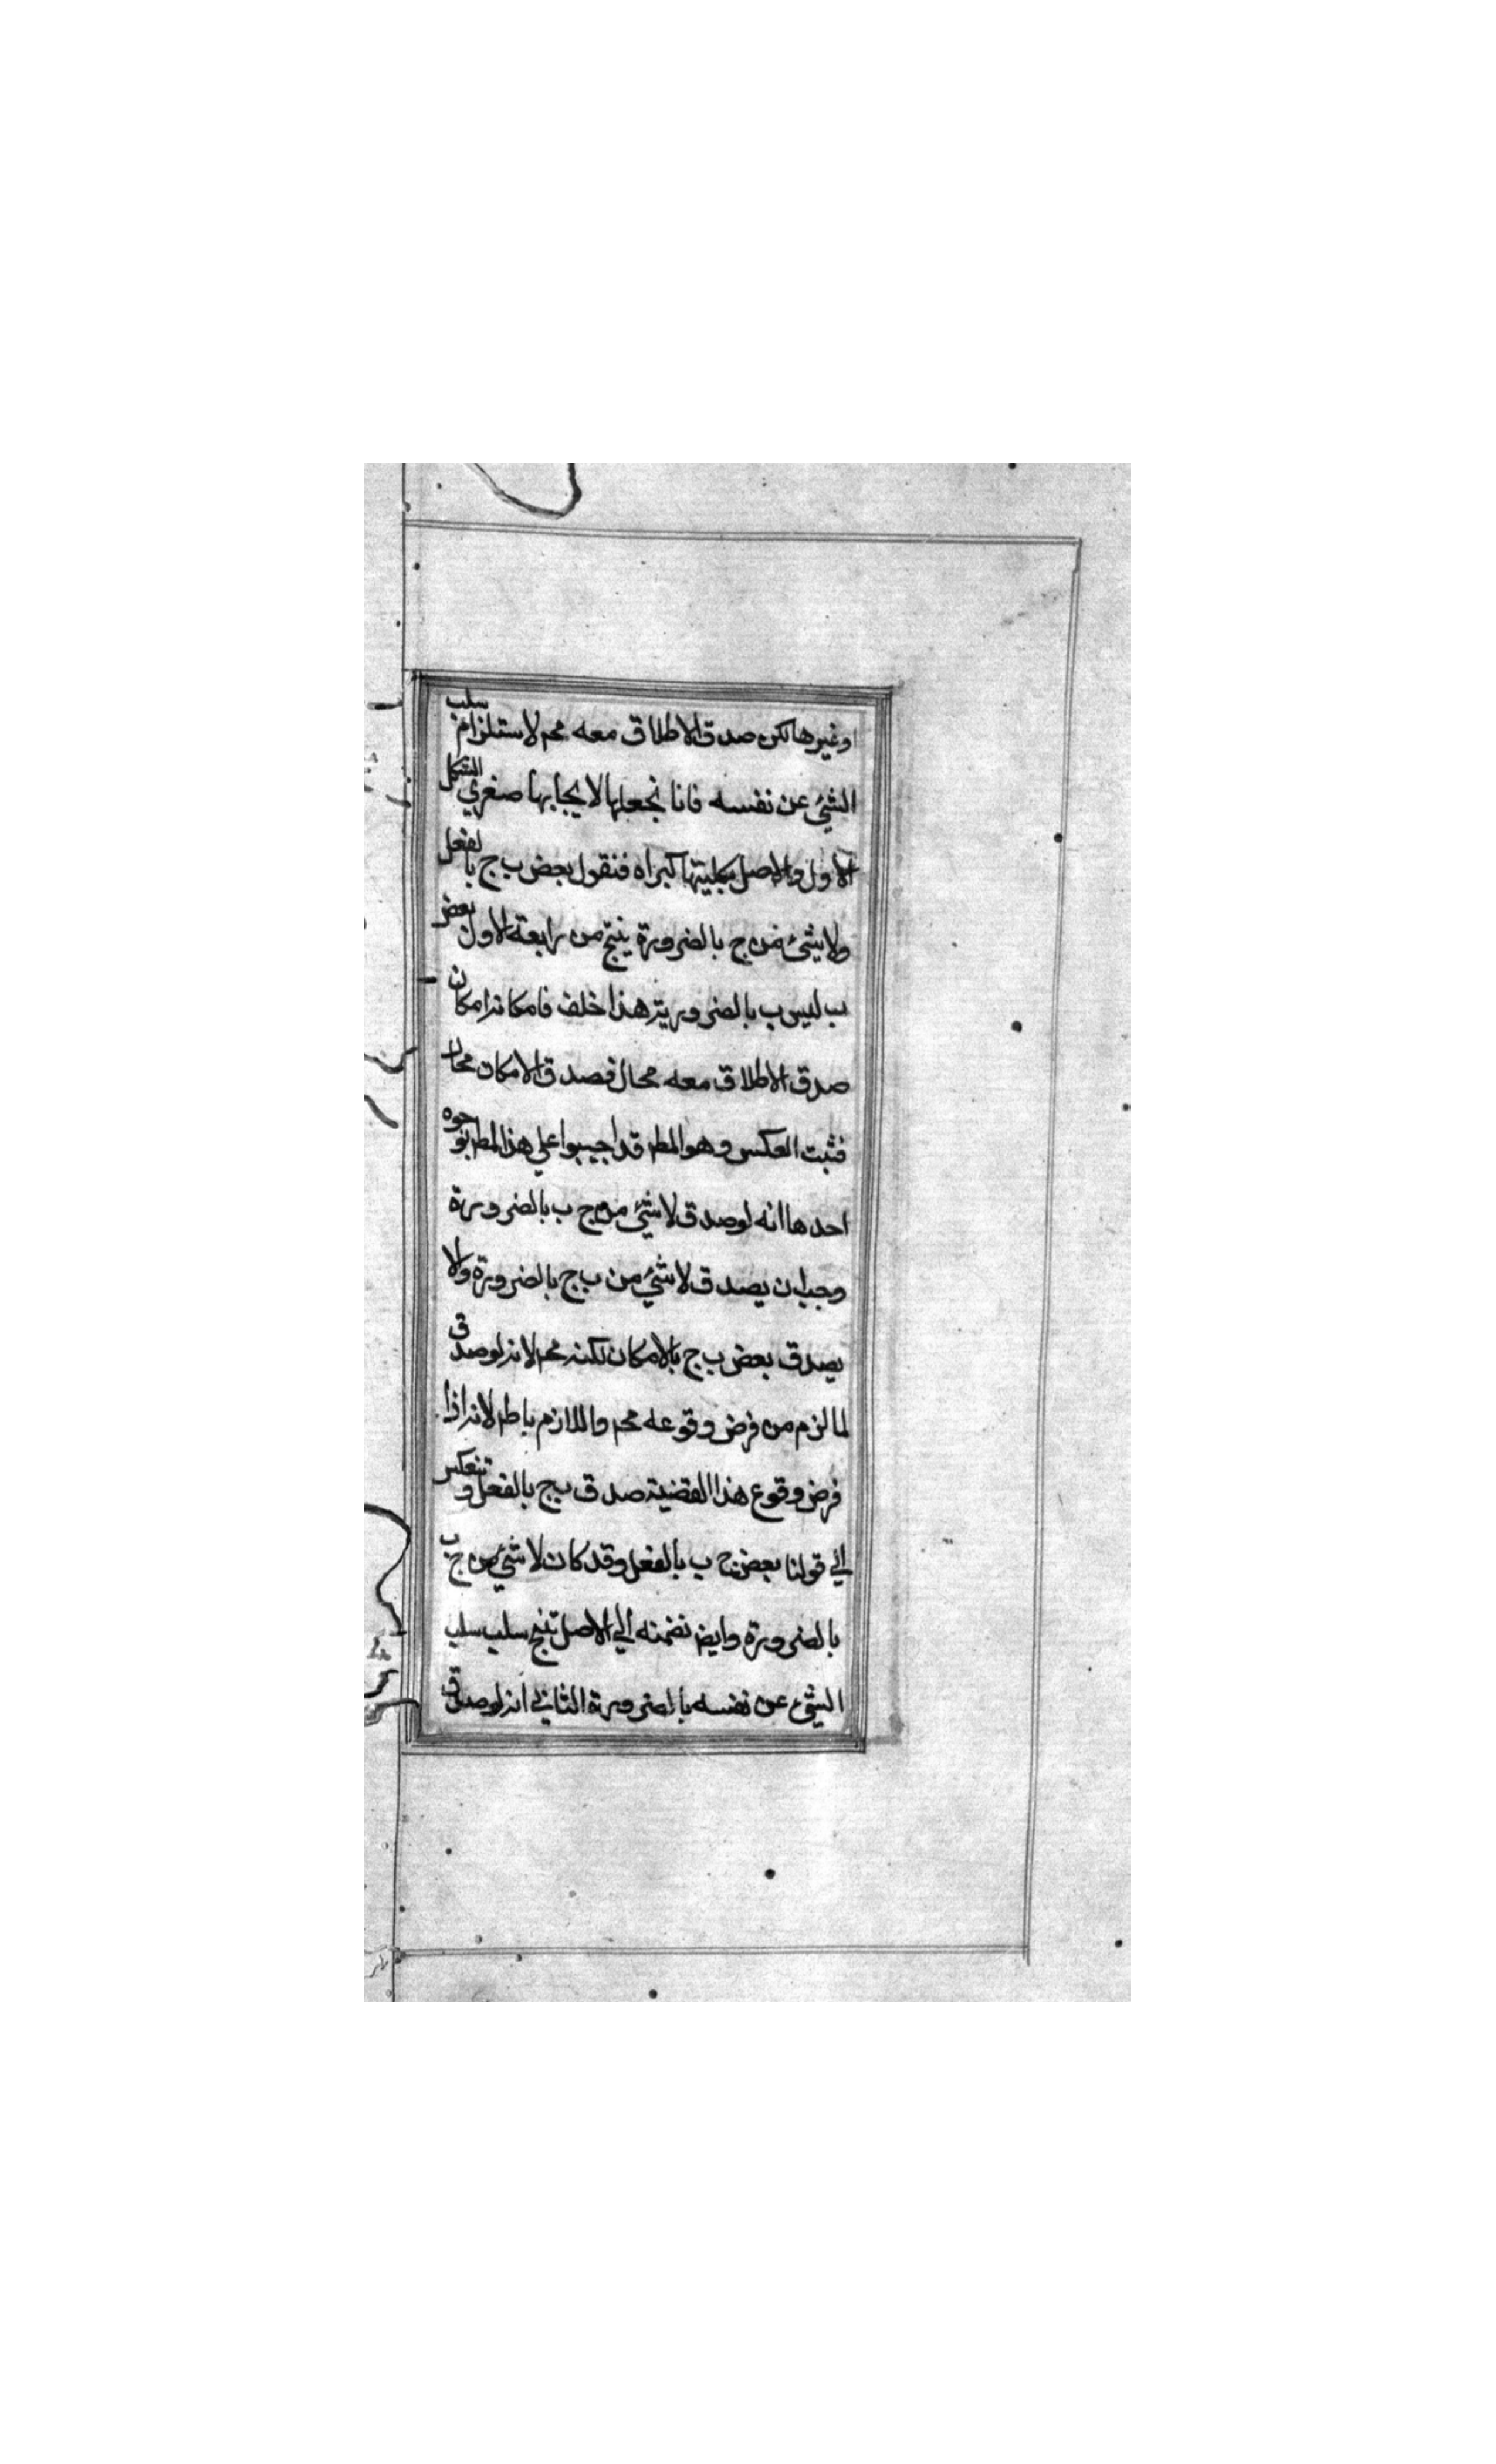 اوغيرها لكن صدق الاطلاق معه مح لاستلزام سلب
الشئ عن نفسه فانا نجعلها لايجابها صغري الشكل
الاول والاصل بكليتها كبراه فنقول بعض ب ج بالفعل
ولا شئ من ج بالضرورة ينتج من رابعة الاول بعض
ب ليس ب بالضرورية هذا خلف فامكانه امكان
صدق الاطلاق معه محال فصدق الامكان محال
فثبت العكس وهو المط قد اجيبوا علي هذا المط بوجوه
احدها انه لو صدق لا شئ من ج ب بالضرورة
وجب ان يصدق لا شئ من ب ج بالضرورة والا
يصدق بعض ب ج بالامكان لكنه مح لانه لو صدق
لما لزم من فرض وقوعه مح واللازم باطل لانه اذا
فرض وقوع هذا القضية صدق ب ج بالفعل وتنعكس
الي قولنا بعض ج ب بالفعل وقد كان لا شئ من ج ب
بالضرورة وايض نضمنه الي الاصل تنتج سلب سلب
الشئ عن نفسه بالضرورة الثاني انه لو صدق